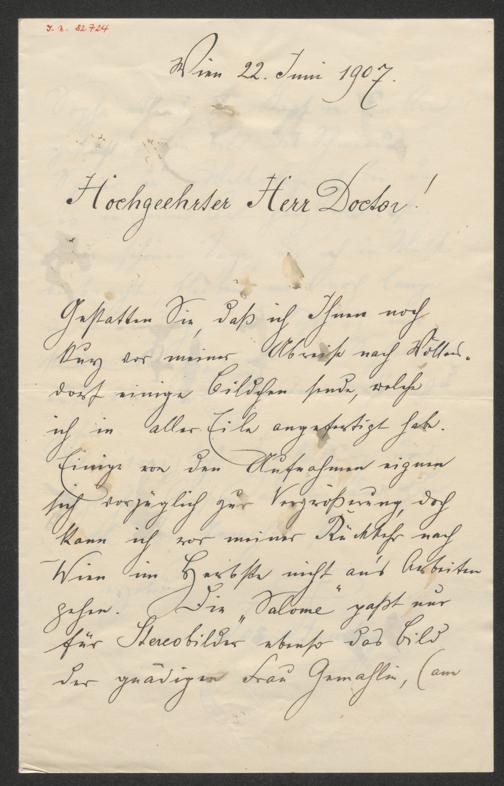 I. N. 82724
Wien 22. Juni 1907.
Hochgeehrter Herr Doctor!
Gestatten Sie, daß ich Ihnen noch
kurz vor meiner Abreise nach Wollers-
dorf einige Bildchen sende, welche
ich in aller Eile angefertigt habe.
Einige von den Aufnahmen eignen
sich vorzüglich zur Vergrößerung, doch
kann ich vor meiner Rückkehr nach
Wien im Herbste nicht ans Arbeiten
gehen. Die „Salome" paßt nur
für Stereobilder ebenso das Bild
der gnädigen Frau Gemahlin, (am